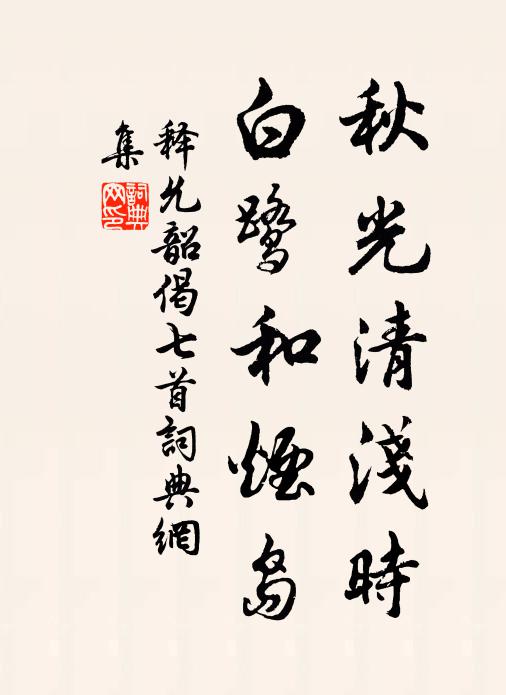 秋光清淺時
白鷺和煙島
释允韶偈七首詞典網
集
詞典
网印